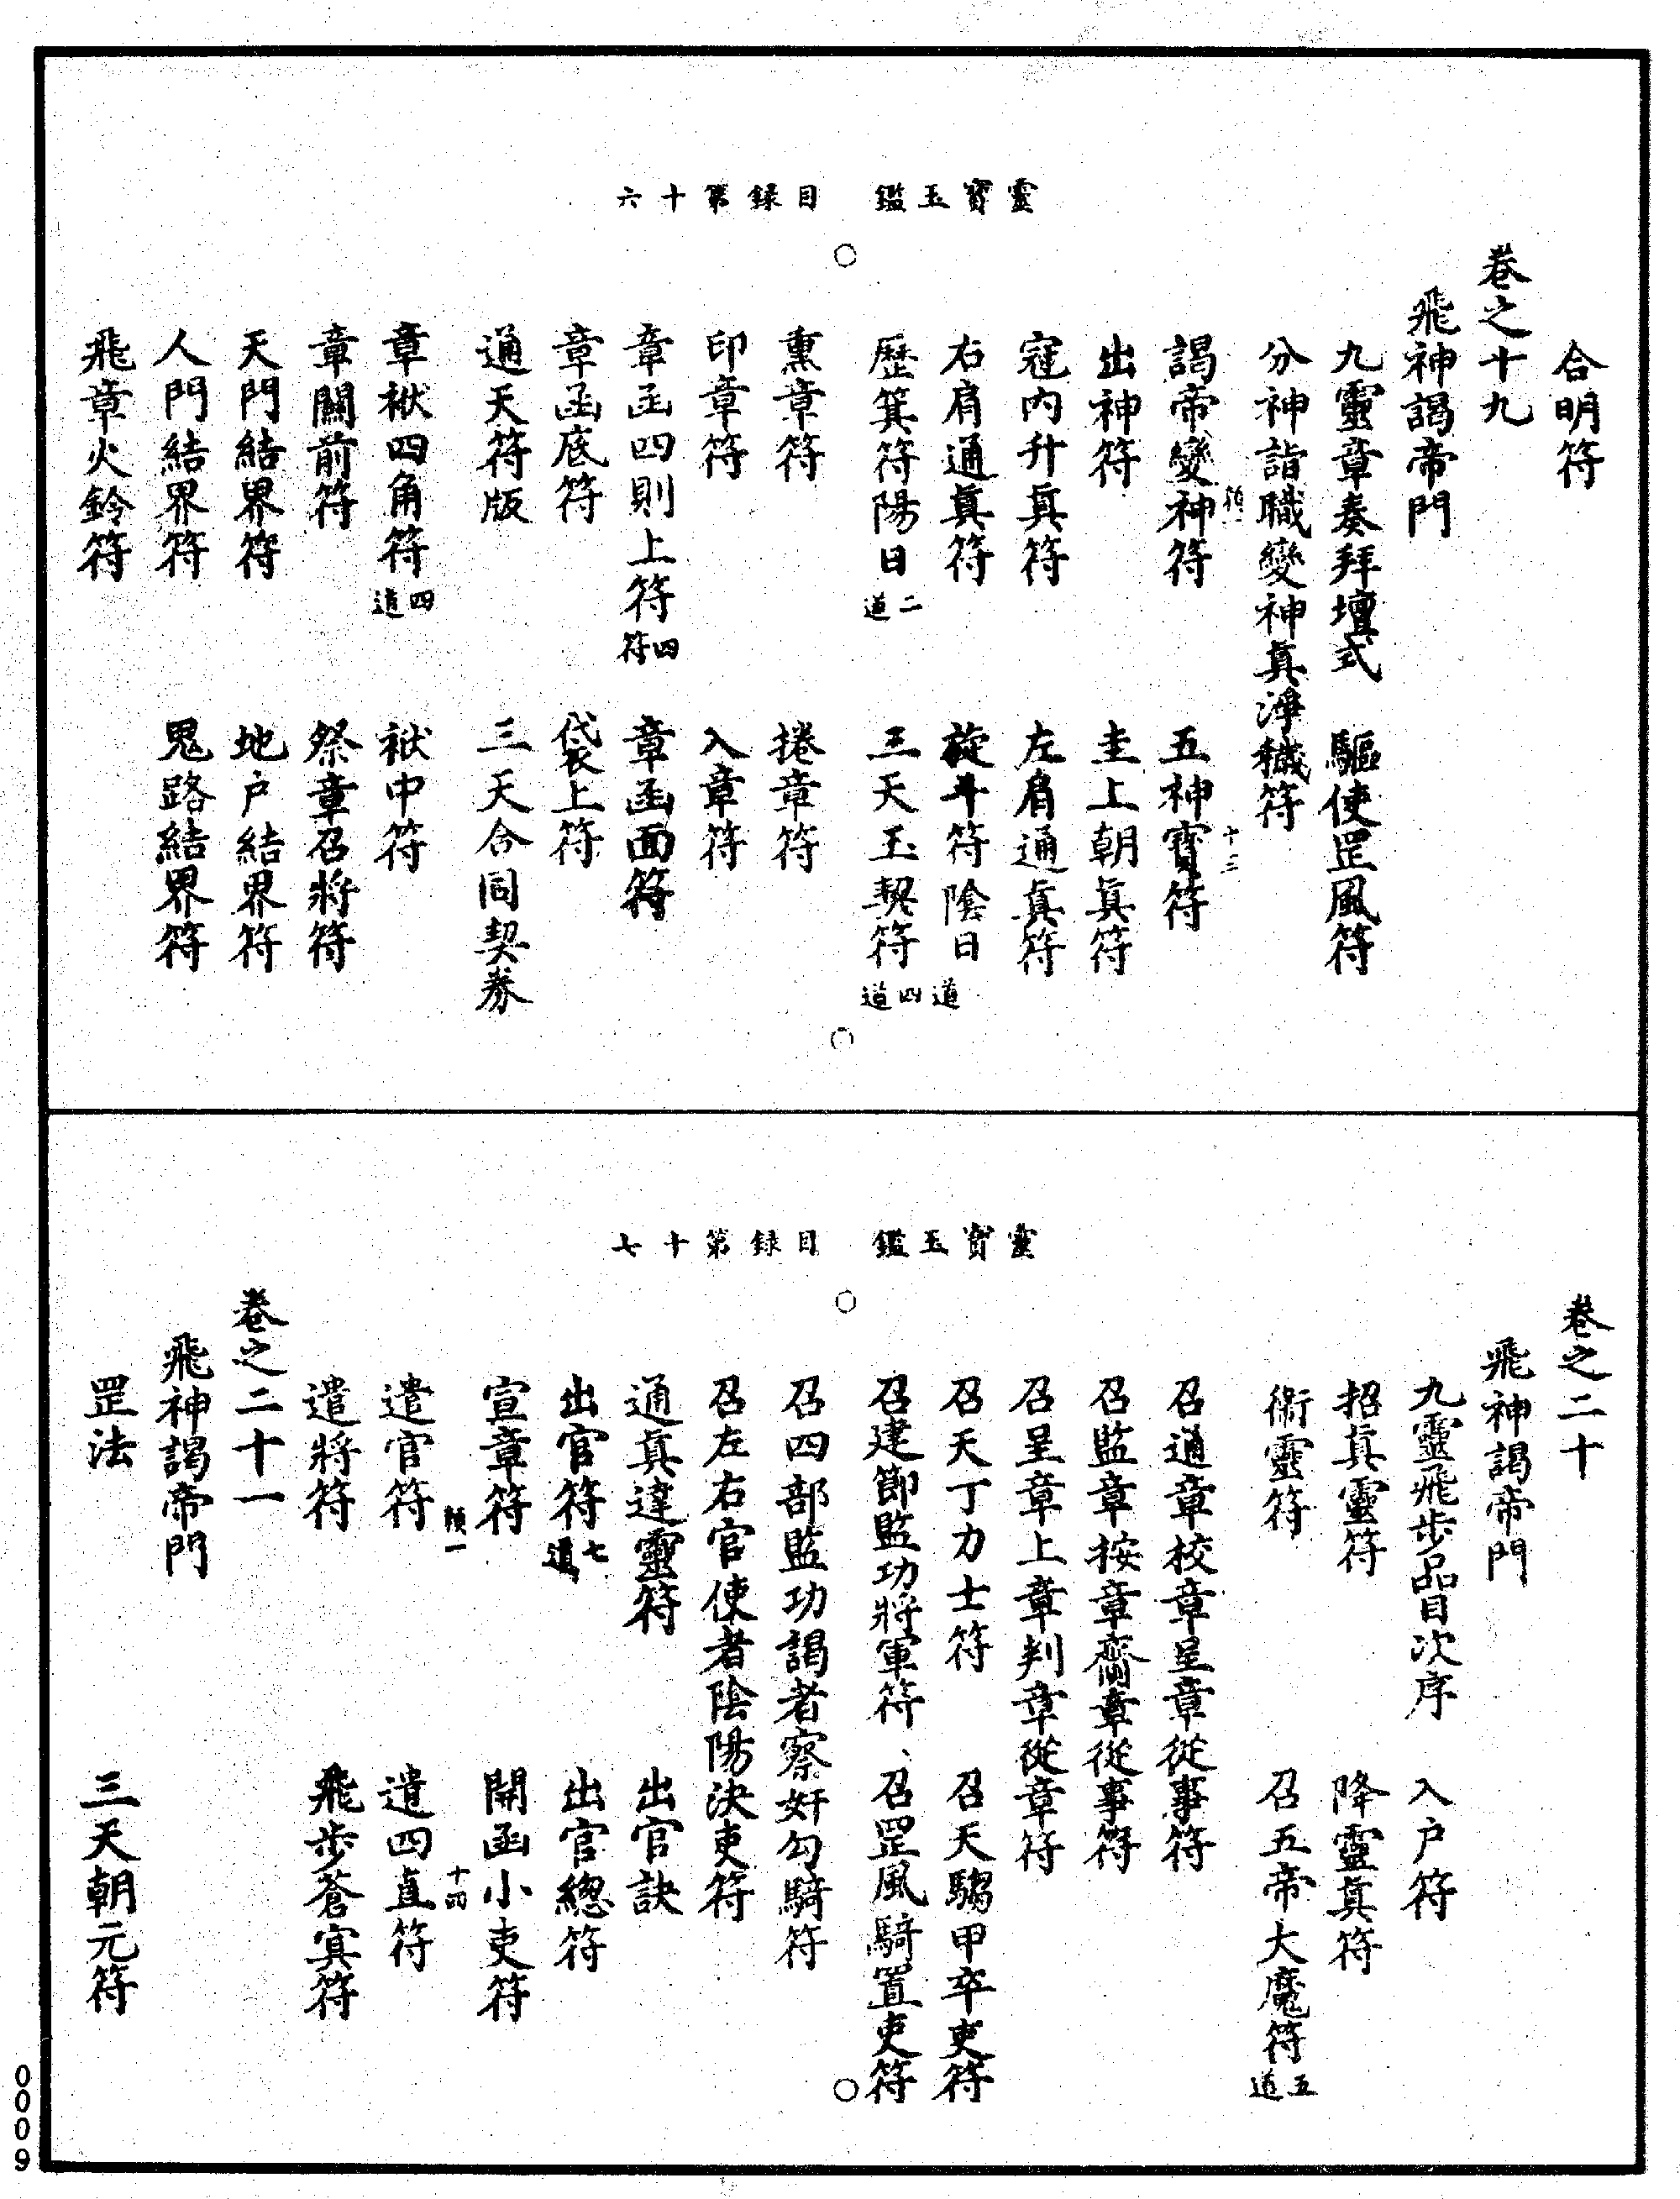 靈寶玉鑑　目録第十六
合明符
卷之十九
飛神謁帝門
九靈章奏拜壇式　驅使罡風符
分神詣職變神真淨穢符
十三
謁帝變神符　五神寶符
出神符　圭上朝真符
冠内升真符　左肩通真符
右肩通真符　旋斗符陰日道
歷箕符陽日二道　三天玉契符四道
熏章符　捲章符
印章符　入章符
章函四則上符四符　章函面符
章函底符　袋上符
通天符版　三天合同契券
章袱四角符四道　袱中符
章關前符　祭章召將符
天門結界符　地户結界符
人門結界符　鬼路結界符
飛章火鈴符
靈寶玉鑑　目録第十七
卷之二十
飛神謁帝門
九靈飛步品目次序　入户符
招真靈符　降靈真符
衛靈符　召五帝大魔符五道
召通章校章呈章從事符
召監章按章齎章從事符
召呈章上章判章從章符
召天丁力士符　召天騶甲卒吏符
召建節監功將軍符、召罡風騎置吏符
召四部監功謁者察奸勾騎符
召左右官使者陰陽決吏符
通真達靈符　出官訣
出官符七道　出官總符
宣章符　開函小吏符
十四
遣官符　遣四直符
遣將符　飛步蒼冥符
卷之二十一
飛神謁帝門
罡法　三天朝元符
0009